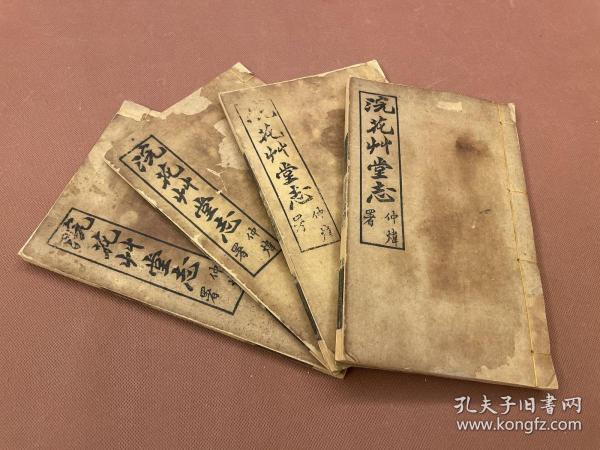 浣花艸堂志
仲煒
署
浣花艸堂志
仲煒
署
花艸堂志
仲煒
署
浣花艸堂志
仲煒
署
孔夫子旧书网
www.kongfz.com